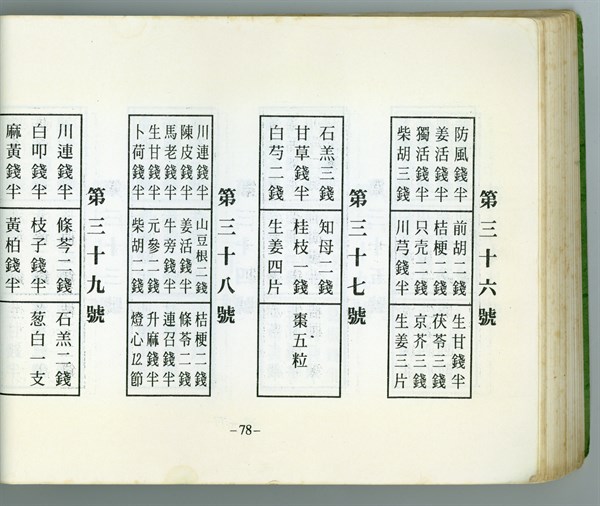 第三十六號
防風錢半 前胡二錢 生甘錢半
姜活錢半 桔梗二錢 茯苓三錢
獨活錢半 只壳二錢 京芥三錢
柴胡三錢 川芎錢半 生姜三片
第三十七號
石羔三錢 知母二錢 棗五粒
甘草錢半 桂枝一錢
白芍二錢 生姜四片
第三十八號
川連錢半 山豆根二錢 桔梗二錢
陳皮錢半 姜活錢半 條苓二錢
馬老錢半 牛旁錢半 連召錢半
生甘錢半 元參二錢 升麻錢半
卜荷錢半 柴胡二錢 燈心12節
第三十九號
川連錢半 條芩二錢 石羔二錢
白叩錢半 枝子錢半 葱白一支
麻黃錢半 黃柏錢半
-78-